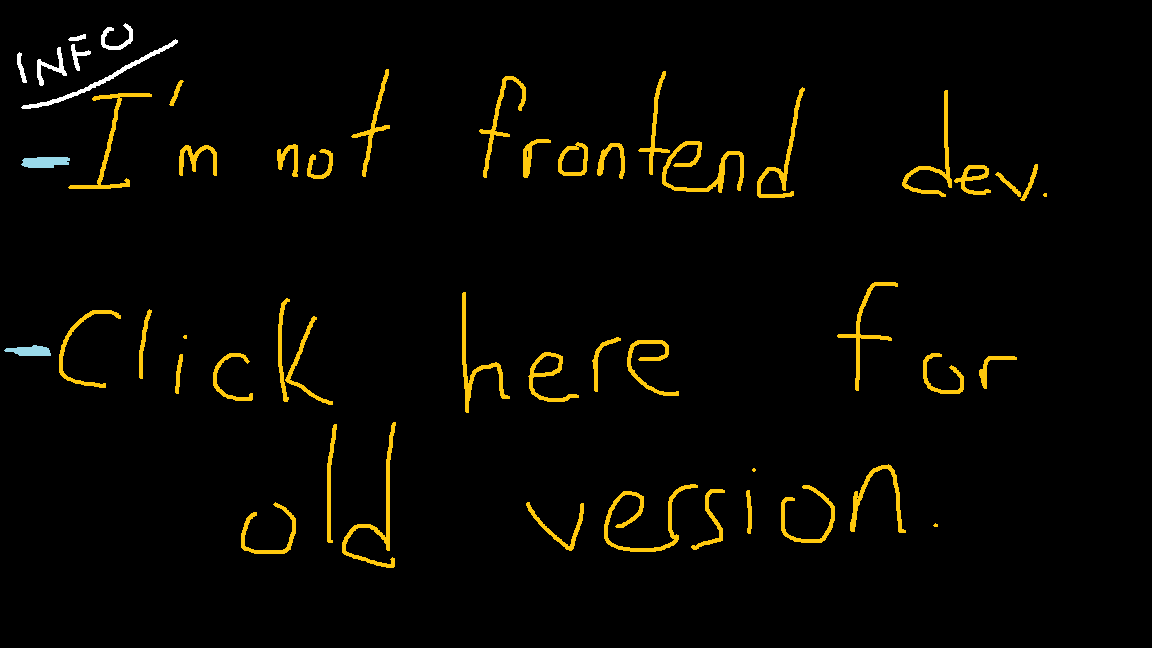 INFO
- I'm not frontend dev.
- Click here for
old version.